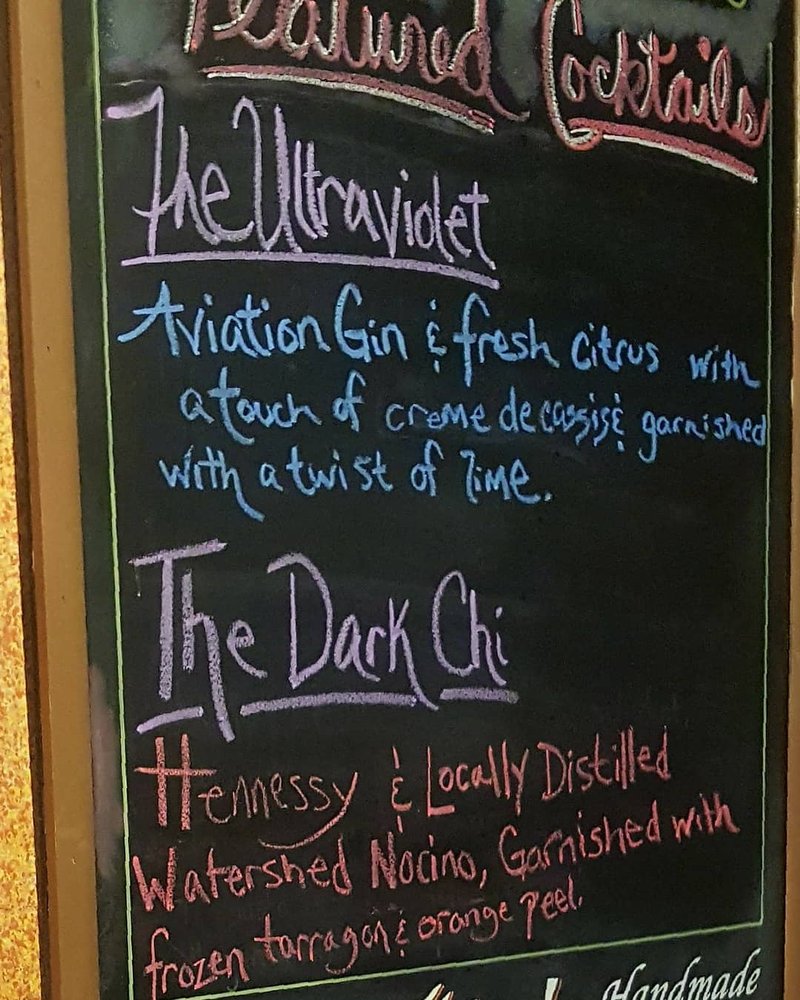 Featured Cocktails
The Ultraviolet
Aviation Gin & fresh citrus with
a touch of creme de cassis & garnished
with a twist of lime.
The Dark Chi
Hennessy & Locally Distilled
Watershed Nocino, Garnished with
frozen tarragon & orange peel.
Handmade